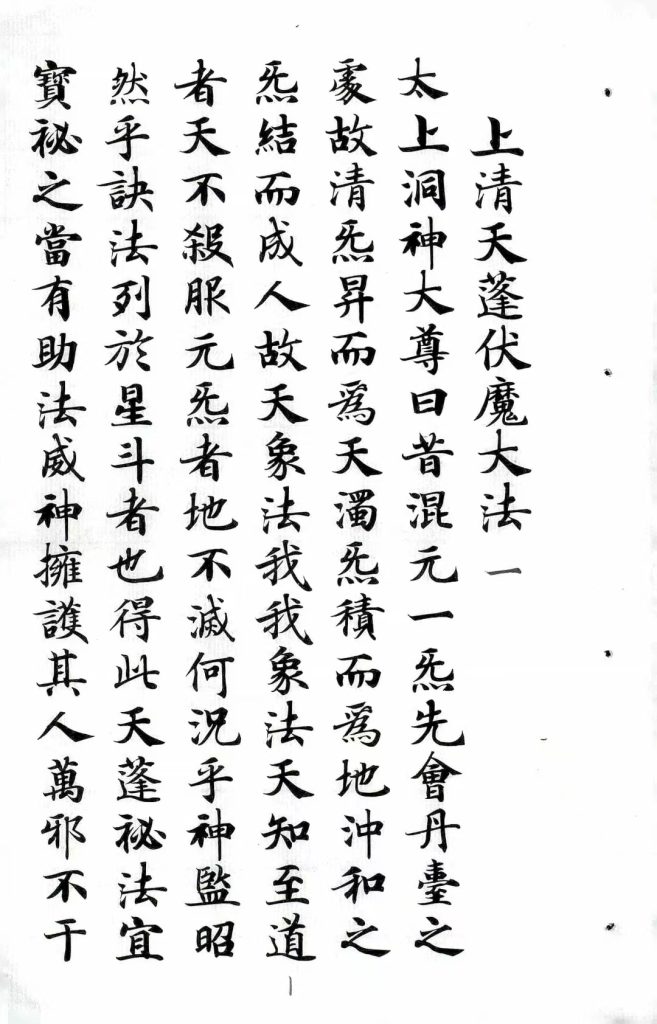 上清天蓬伏魔大法一
太上洞神大尊曰昔混元一炁先會丹臺之
處故清炁昇而爲天濁炁積而爲地沖和之
炁結而成人故天象法我我象法天知至道
者天不殺服元炁者地不滅何況乎神監昭
然乎訣法列於星斗者也得此天蓬祕法宜
寶祕之當有助法威神擁護其人萬邪不干